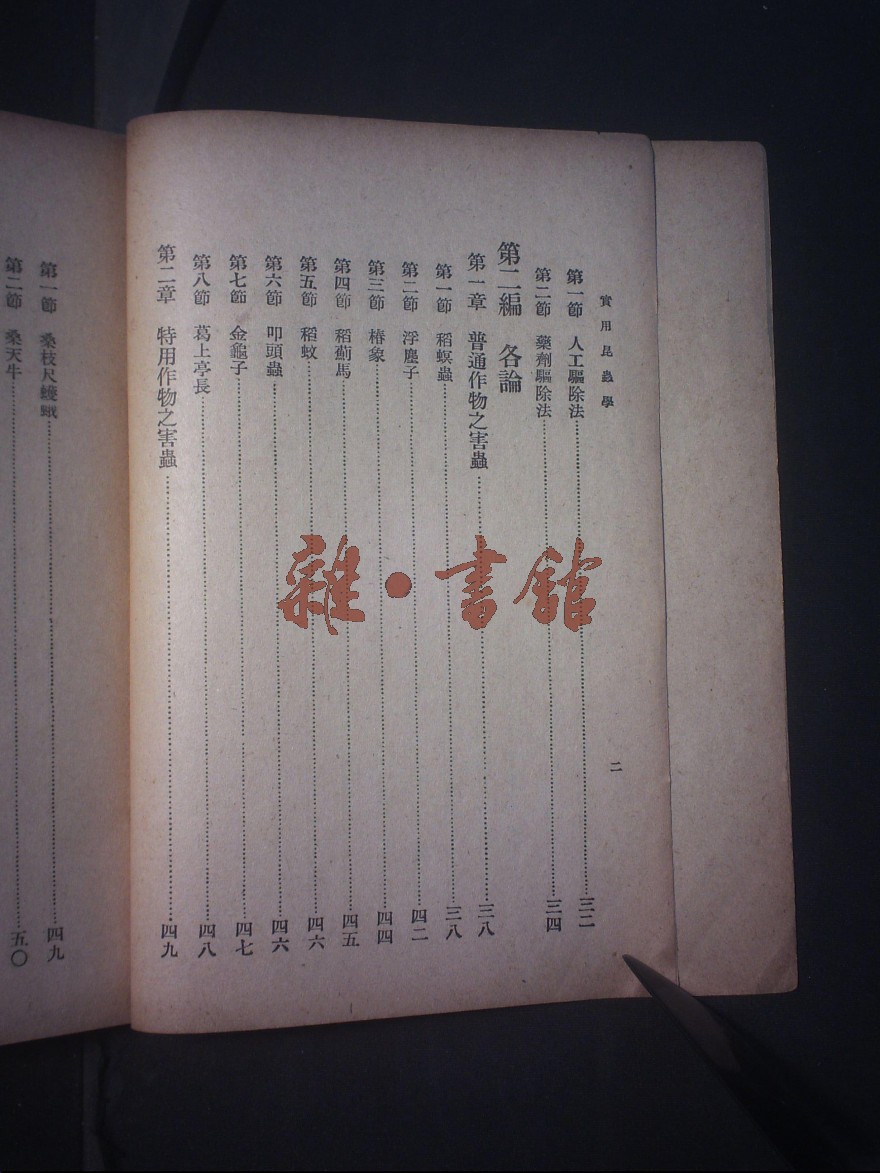 實用昆蟲學
二
第一節 人工驅除法……三二
第二節 藥劑驅除法……三四
第二編 各論
第一章 普通作物之害蟲……三八
第一節 稻螟蟲……三八
第二節 浮塵子……四二
第三節 椿象……四四
第四節 稻薊馬……四五
第五節 稻蚊……四六
第六節 叩頭蟲……四六
第七節 金龜子……四七
第八節 葛上亭長……四八
第二章 特用作物之害蟲……四九
第一節 桑枝尺蠖蛾……四九
第二節 桑天牛……五〇
雜·書館